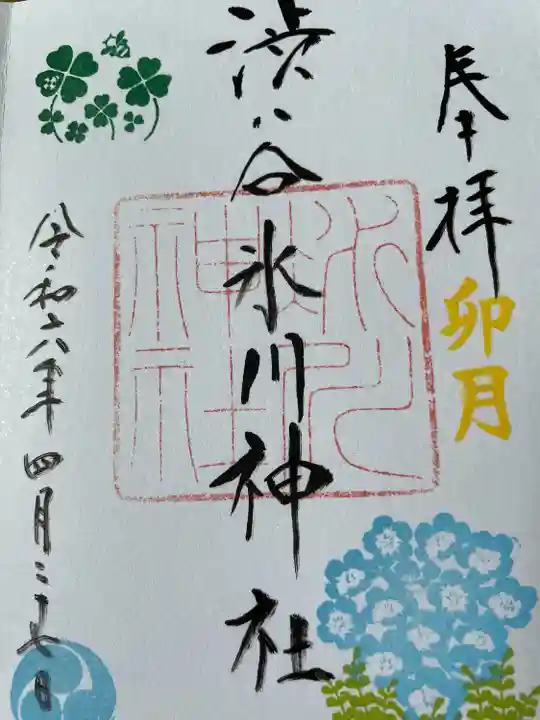 奉拝
卯月
渋谷氷川神社
氷川
神社
令和六年四月二十七日